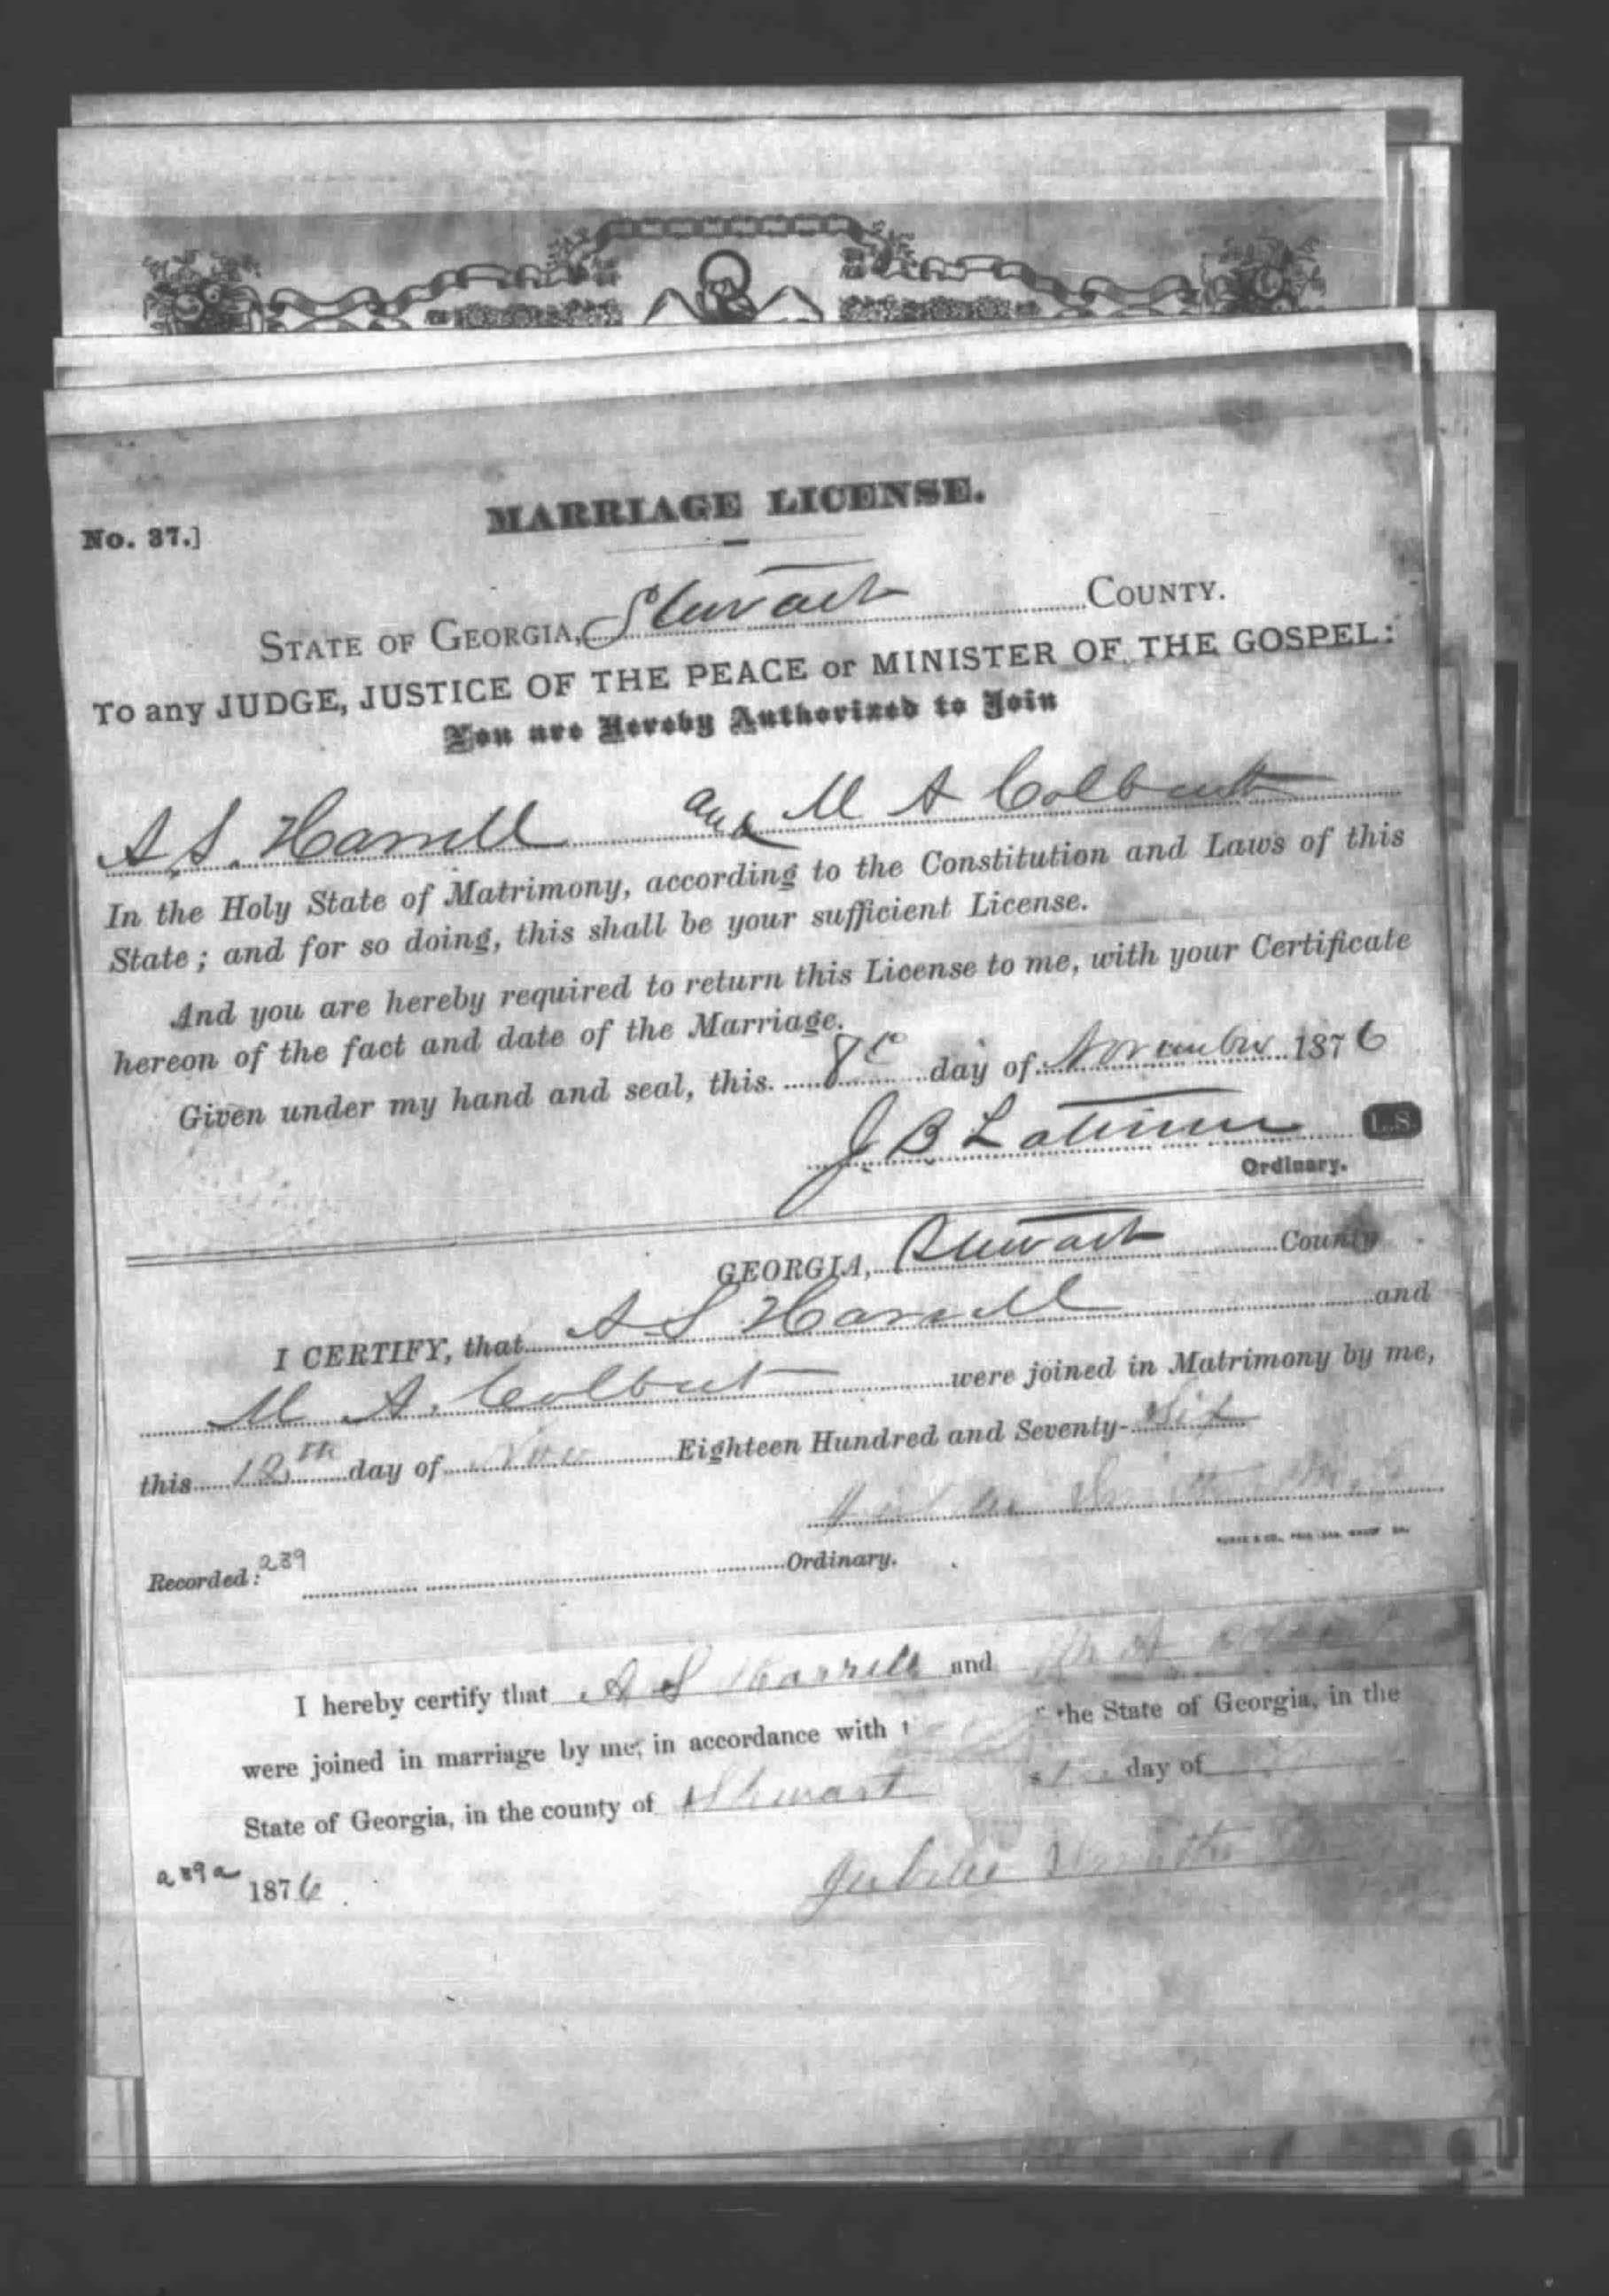 MARRIAGE LICENSE.
No. 37.]
STATE OF GEORGIA, Stewart COUNTY.
To any JUDGE, JUSTICE OF THE PEACE or MINISTER OF THE GOSPEL:
You are Hereby Authorized to Join
A. S. Harrell and M A Colbert
In the Holy State of Matrimony, according to the Constitution and Laws of this
State; and for so doing, this shall be your sufficient License.
And you are hereby required to return this License to me, with your Certificate
hereon of the fact and date of the Marriage.
Given under my hand and seal, this 8th day of November 1876
J B Latimer L.S.
Ordinary.
GEORGIA, Stewart County
I CERTIFY, that A S Harrell and
M A. Colbert were joined in Matrimony by me,
this 12th day of Nov Eighteen Hundred and Seventy-Six
Smith M. G
Recorded: 239 Ordinary.
I hereby certify that A S Harrell and M A
were joined in marriage by me, in accordance with the State of Georgia, in the
State of Georgia, in the county of Stewart day of
239a 1876. Jubilee Smith